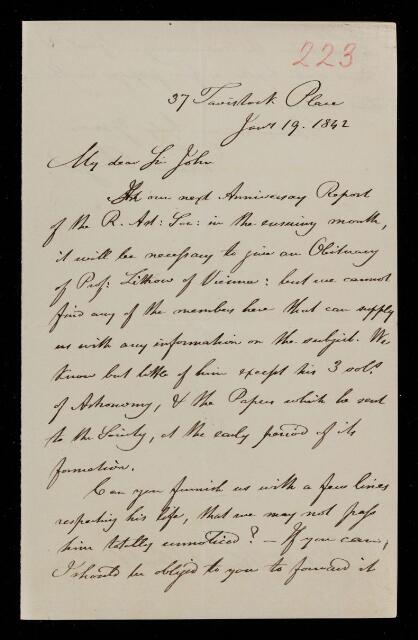 223
37 Tavistock Place
Jany 19. 1842
My dear Sir John
In our next Anniversary Report
of the R. Ast: Soc: in the ensuing month,
it will be necessary to give an Obituary
of Prof: Littrow of Vienna: but we cannot
find any of the members here that can supply
us with any information on the subject. We
know but little of him except his 3 vols.
of Astronomy, & the Papers which he sent
to the Society, at the early period of its
formation.
Can you furnish us with a few lines
respecting his life, that we may not pass
him totally unnoticed? — If you can,
I should be obliged to you to forward it